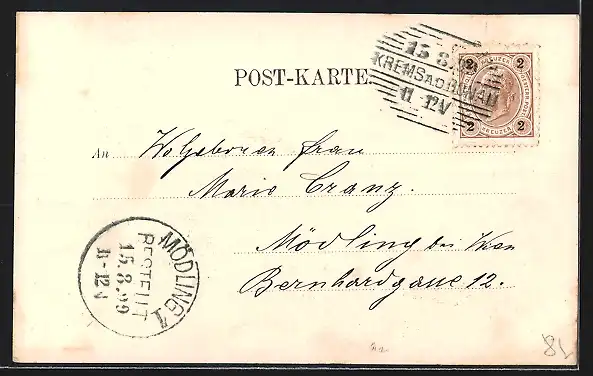 15 8
KREMS A D DONAU
11-12V
2 KREUZER 2
2 KREUZER 2
POST-KARTE.
An Wolgeboren Frau
Marie Cranz.
Mödling bei Wien
Bernhardgasse 12.
MÖDLING 1
BESTELLT
15.8.99
11-12V